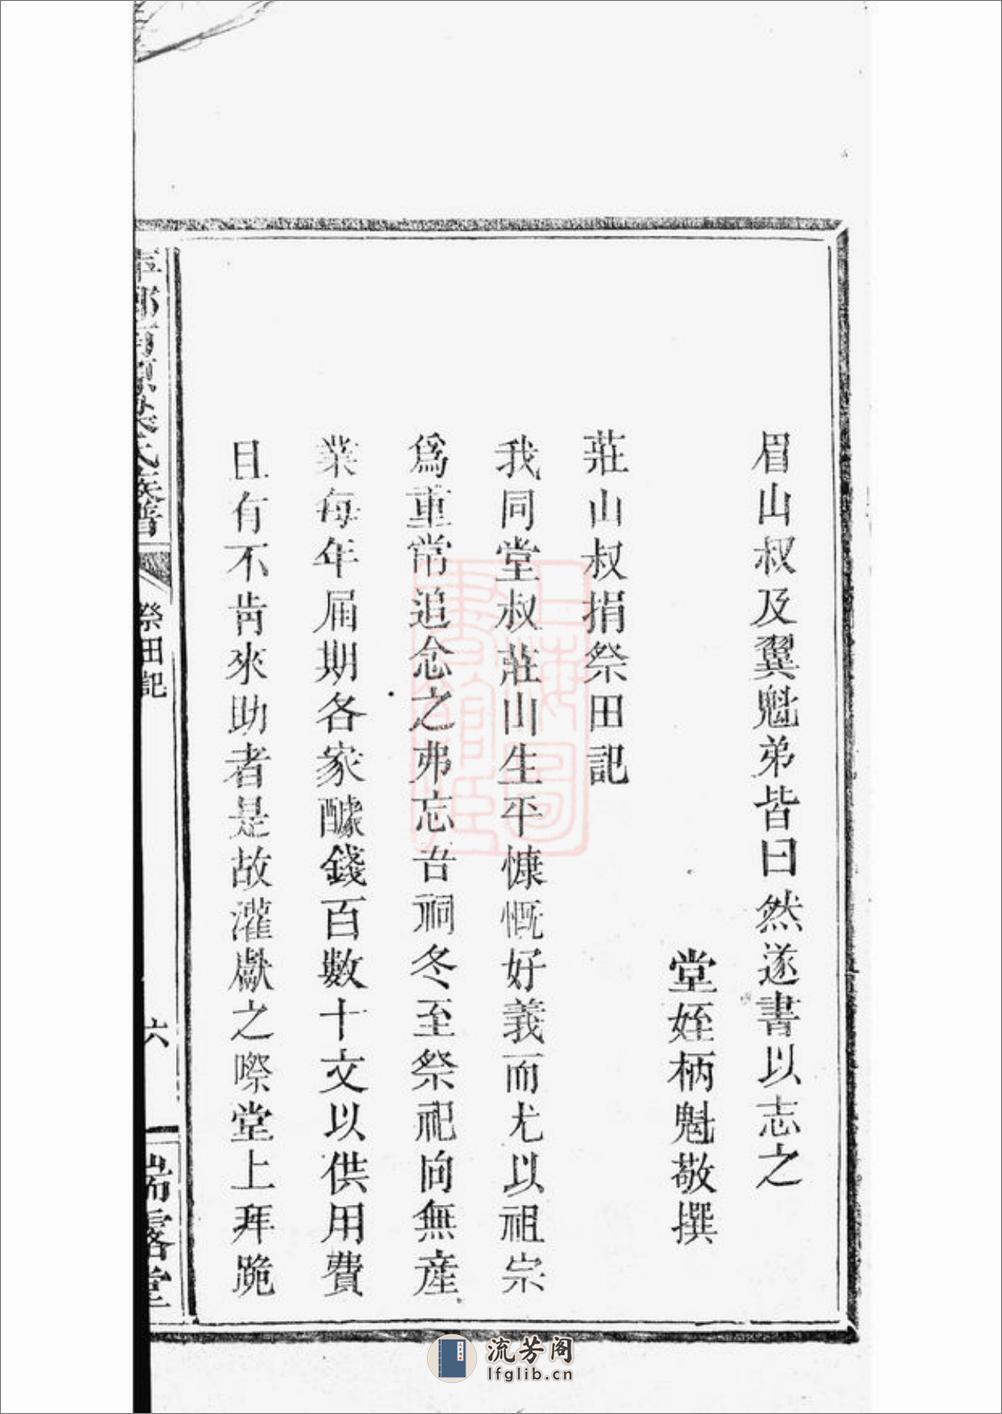 眉山叔及翼魁弟皆曰然遂書以志之
堂姪柄魁敬撰
莊山叔捐祭田記
我同堂叔莊山生平慷慨好義而尤以祖宗
爲重常追念之弗忘吾祠冬至祭祀向無產
業每年届期各家醵錢百數十文以供用費
且有不肯來助者是故灌獻之際堂上拜跪
梁氏族譜
祭田記
六
瑞露堂
上海圖書館藏
流芳阁
lfglib.cn